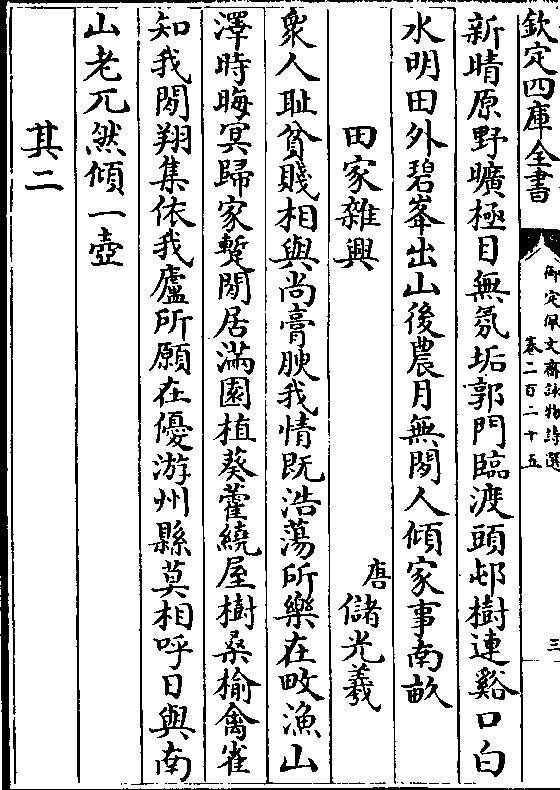 欽定四庫全書
御定佩文齋詠物詩選
卷二百二十五
三
新晴原野曠極目無氛垢郭門臨渡頭邨樹連谿口白
水明田外碧峯出山後農月無閒人傾家事南畝
田家雜興
唐儲光羲
衆人耻貧賤相與尚膏腴我情既浩蕩所樂在畋漁山
澤時晦冥歸家蹔閒居滿園植葵藿繞屋樹桑榆禽雀
知我閒翔集依我廬所願在優游州縣莫相呼日與南
山老兀然傾一壺
其二